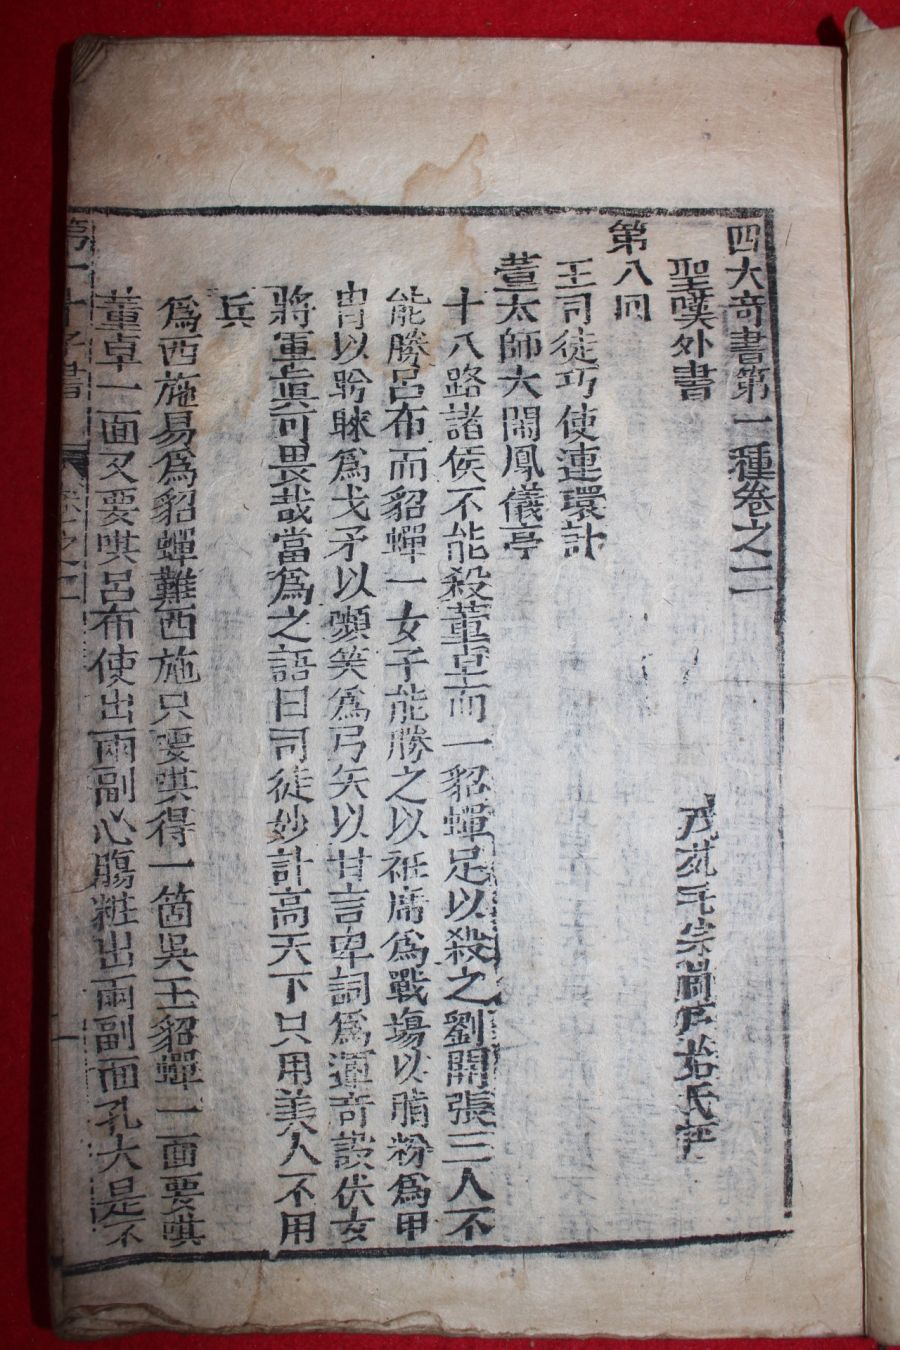 四大奇書第一種卷之二
聖嘆外書
茂苑毛宗崗序始氏評
第八回
王司徒巧使連環計
董太師大閙鳳儀亭
十八路諸侯不能殺董卓而一貂蟬足以殺之劉關張三人不
能勝呂布而貂蟬一女子能勝之以衽席為戰塲以脂粉為甲
冑以盻睞為戈矛以嚬笑為弓矢以甘言卑詞為運奇設伏女
將軍眞可畏哉當為之語曰司徒妙計高天下只用美人不用
兵
為西施易為貂蟬難西施只要哄得一箇吳王貂蟬一面要哄
董卓一面又要哄呂布使出兩副心膓粧出兩副面孔大是不
第一才子書 卷之二 一